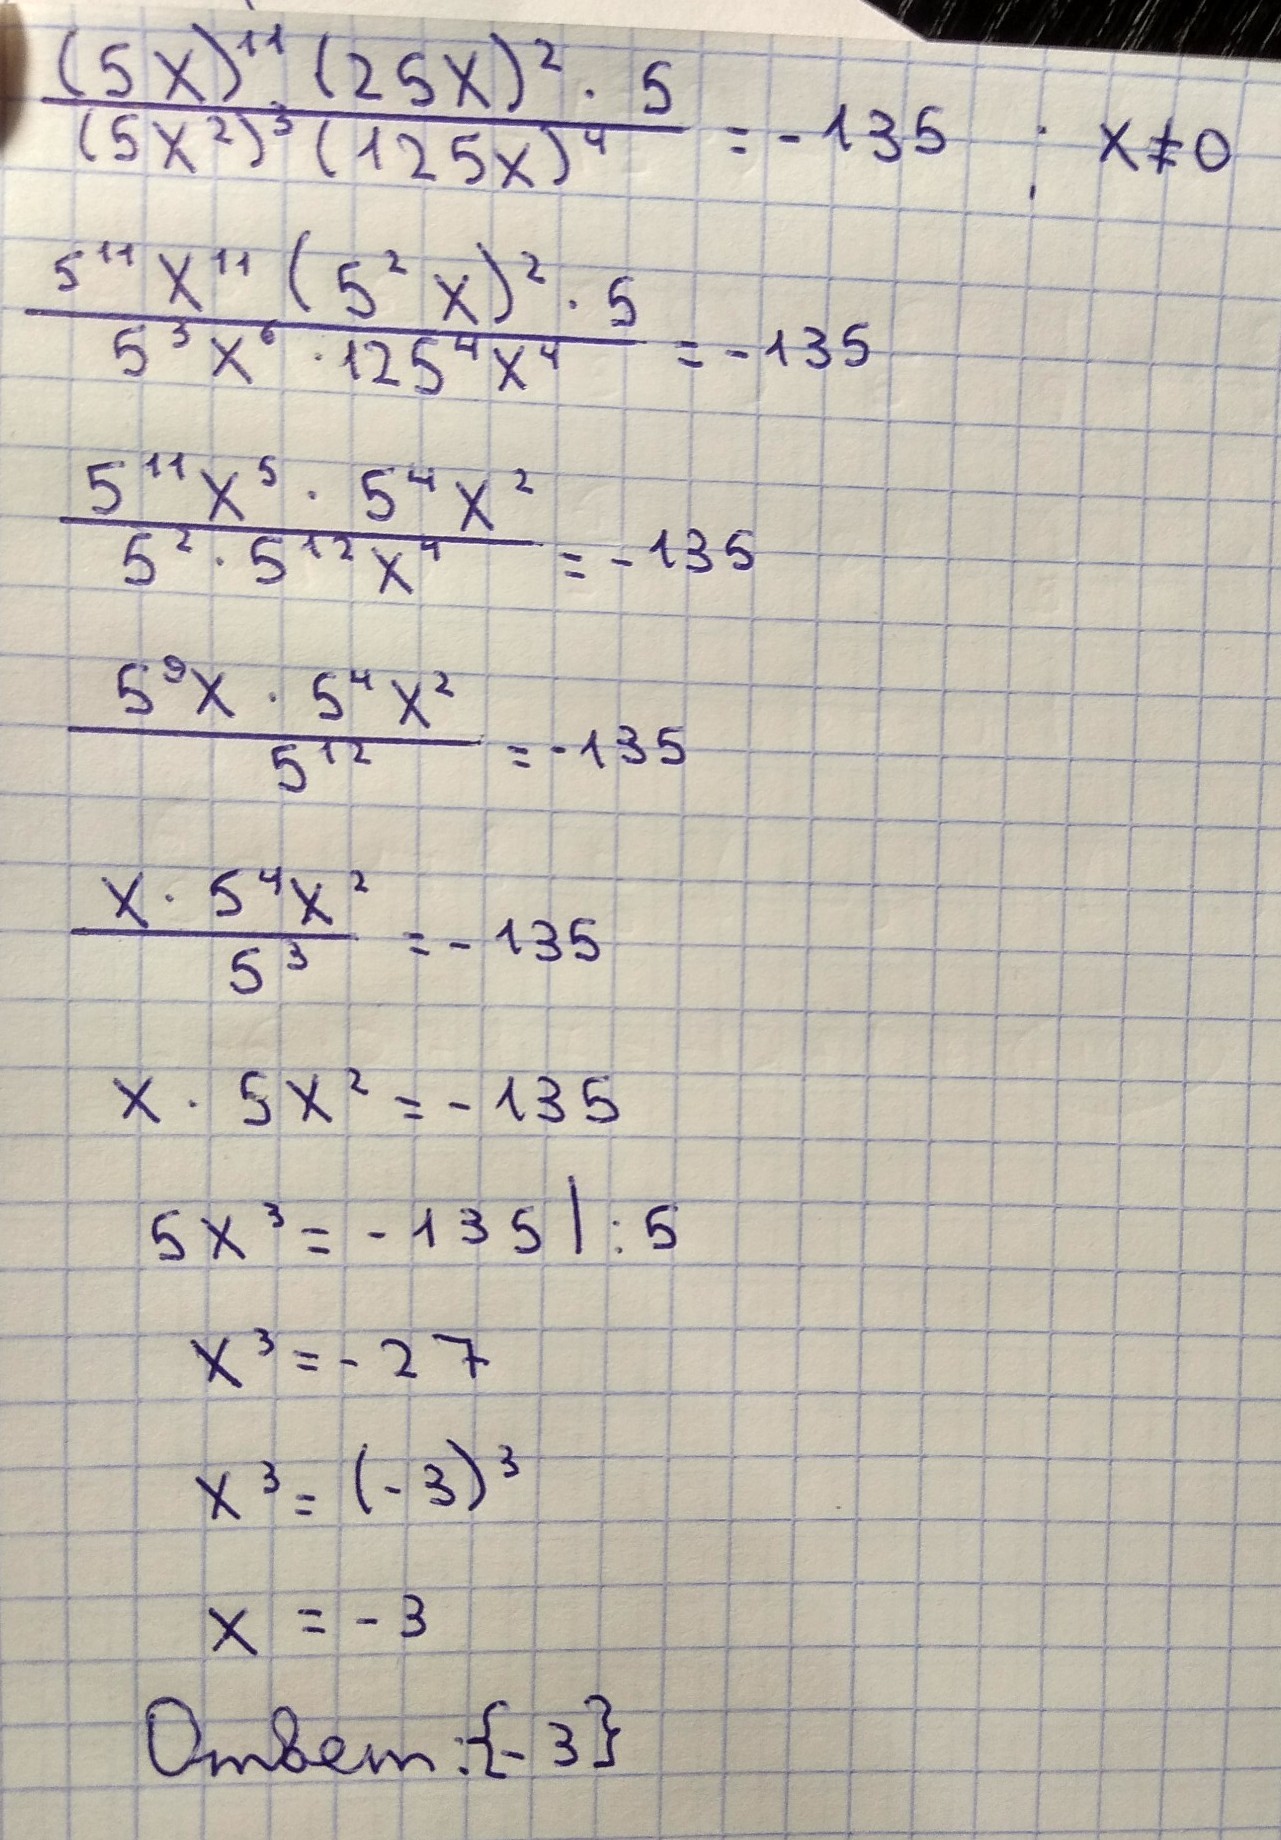 (5x)¹¹ (25x)² · 5 / (5x²)³ (125x)⁴ = -135 ; x ≠ 0
5¹¹x¹¹ (5²x)² · 5 / 5³x⁶ · 125⁴x⁴ = -135
5¹¹x⁵ · 5⁴x² / 5² · 5¹²x⁴ = -135
5⁹x · 5⁴x² / 5¹² = -135
x · 5⁴x² / 5³ = -135
x · 5x² = -135
5x³ = -135 | : 5
x³ = -27
x³ = (-3)³
x = -3
Ответ: {-3}